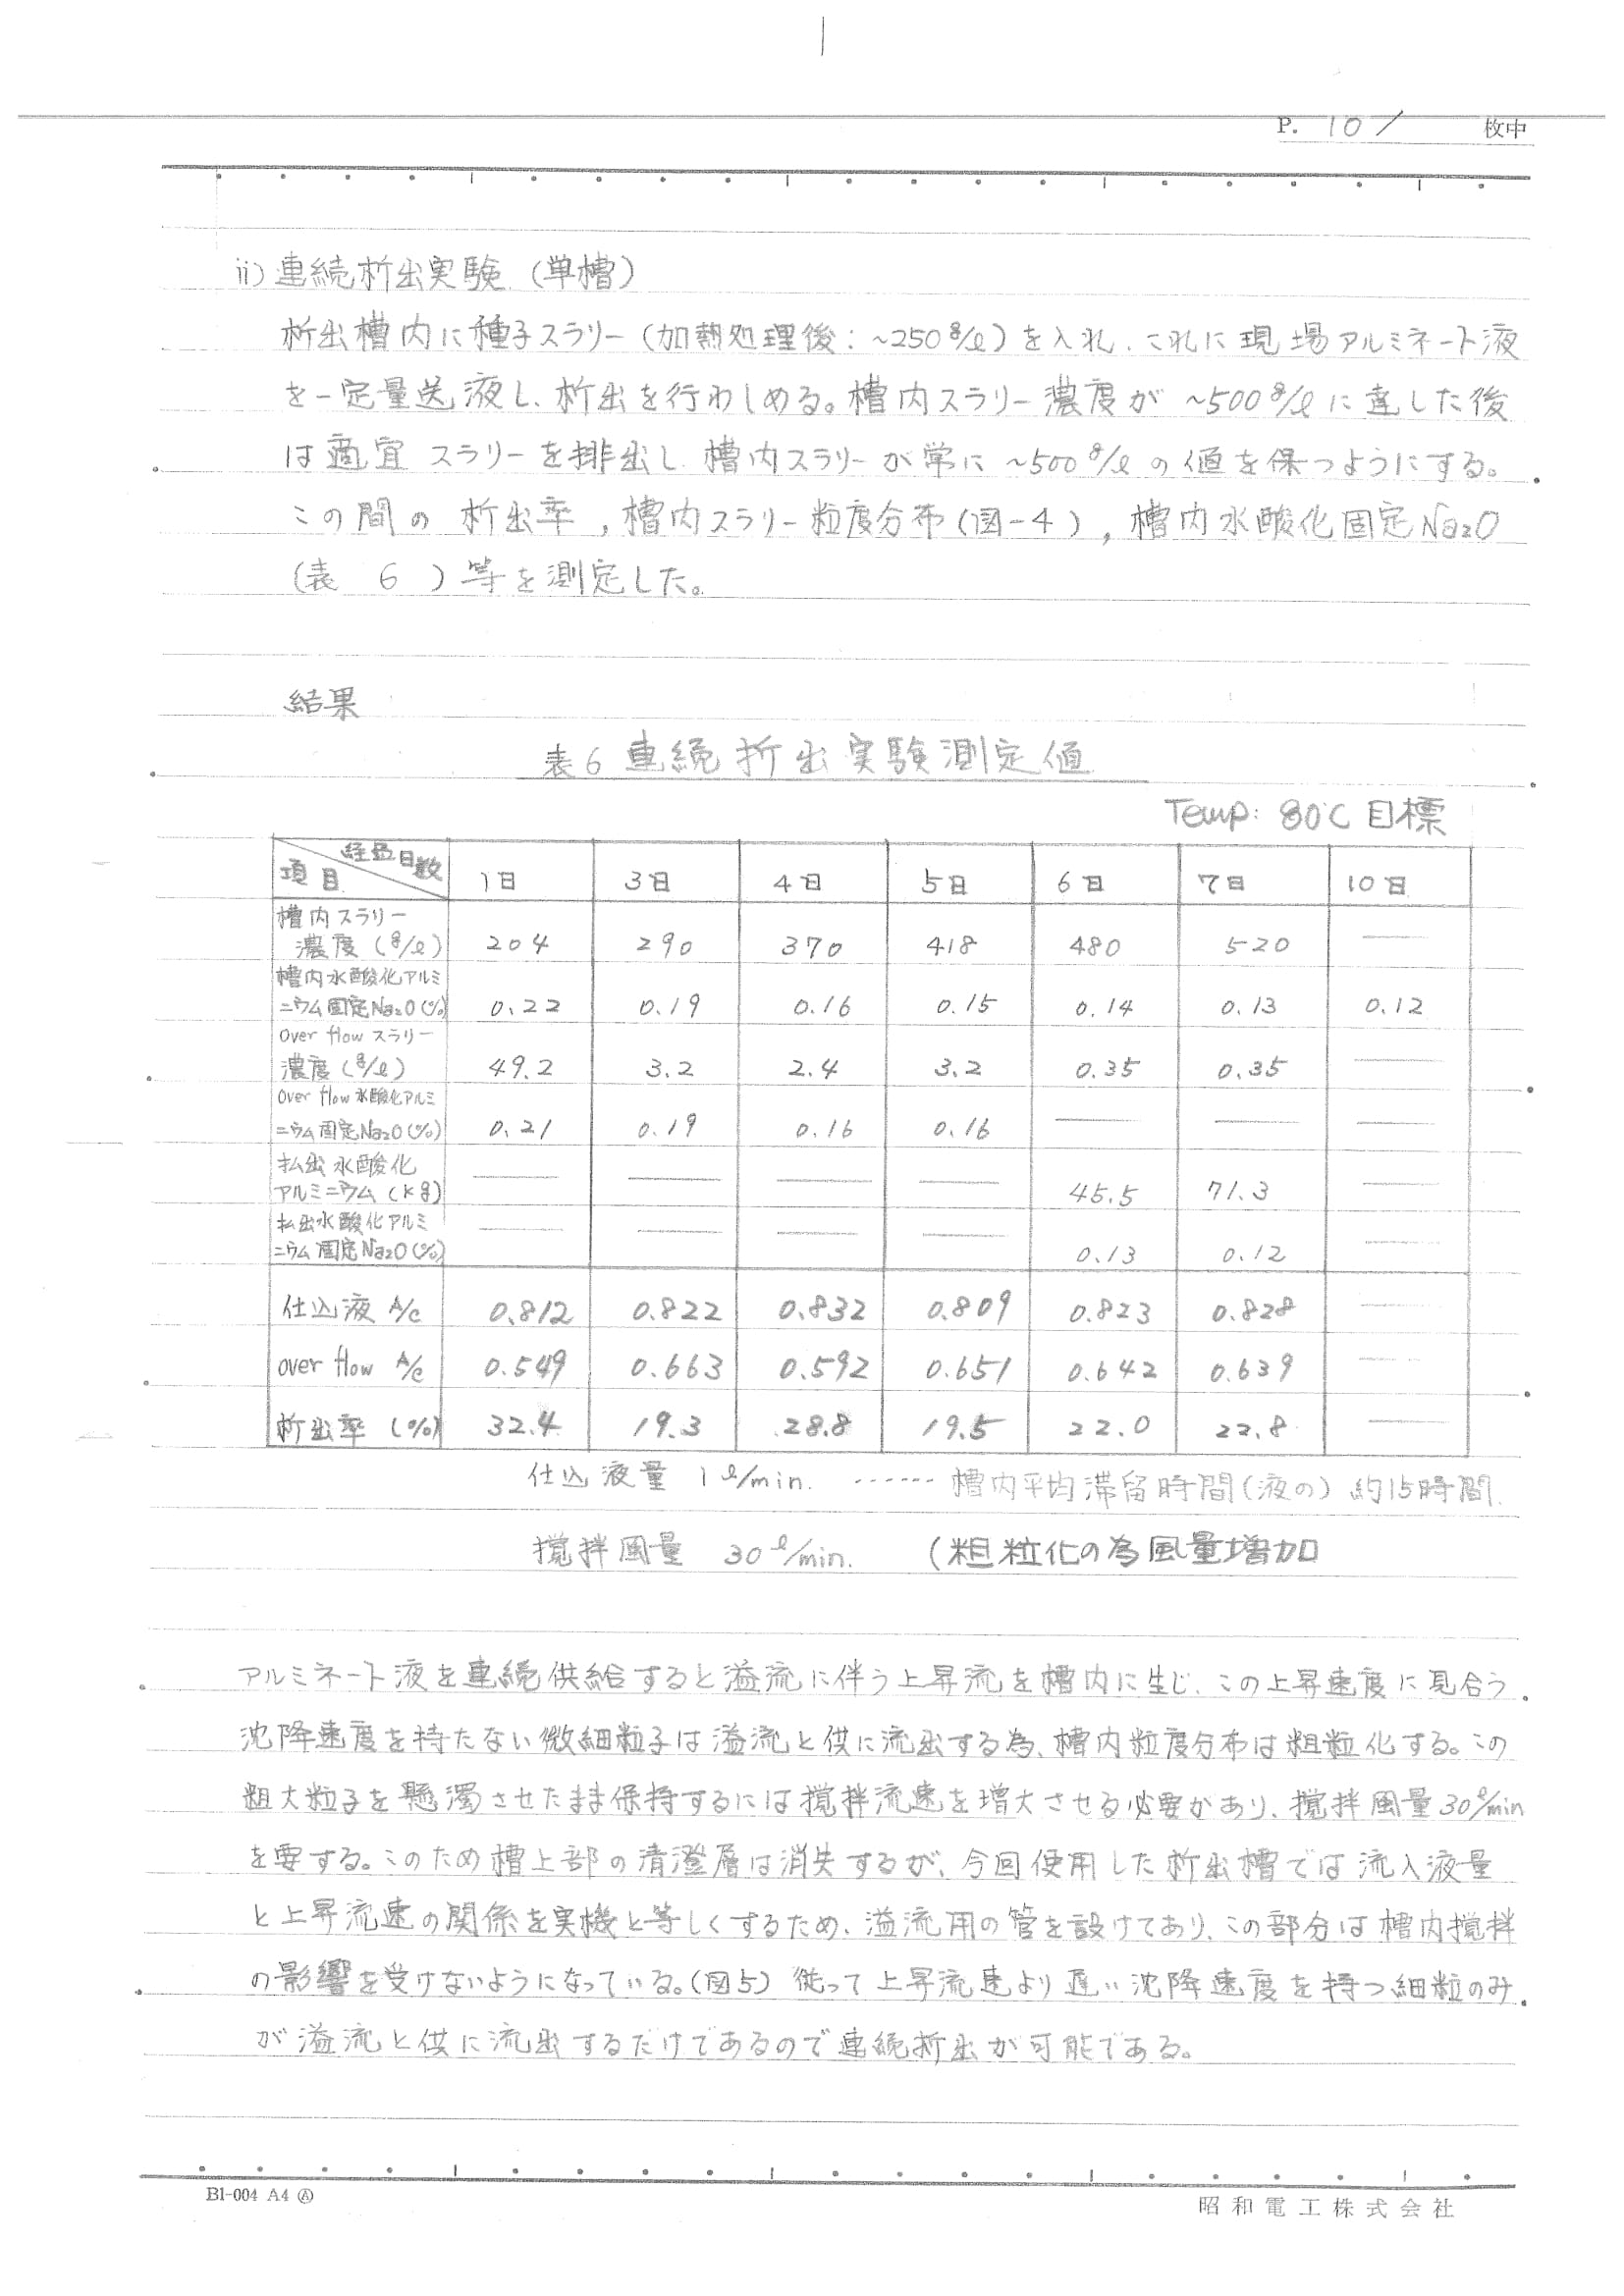 P. 10 / 枚中
ii) 連続析出実験 (単槽)
析出槽内に種子スラリー (加熱処理後: ~250g/l) を入れ、これに現場アルミネート液
を一定量送液し、析出を行わしめる。槽内スラリー濃度が ~500g/l に達した後
は適宜 スラリーを排出し 槽内スラリーが常に ~500g/l の値を保つようにする。
この間の 析出率, 槽内スラリー粒度分布 (図-4), 槽内水酸化固定Na₂O
(表 6 ) 等を測定した。
結果
表6 連続析出実験測定値
Temp: 80℃ 目標
項目 経過日数 1日 3日 4日 5日 6日 7日 10日
槽内スラリー
濃度 (g/l) 204 290 370 418 480 520 —
槽内水酸化アルミ
ニウム固定Na₂O (%) 0.22 0.19 0.16 0.15 0.14 0.13 0.12
Over flow スラリー
濃度 (g/l) 49.2 3.2 2.4 3.2 0.35 0.35 —
Over flow 水酸化アルミ
ニウム固定Na₂O (%) 0.21 0.19 0.16 0.16 — — —
払出水酸化
アルミニウム (kg) — — — — 45.5 71.3 —
払出水酸化アルミ
ニウム固定Na₂O (%) — — — — 0.13 0.12 —
仕込液 A/c 0.812 0.822 0.832 0.809 0.823 0.828 —
over flow A/c 0.549 0.663 0.592 0.651 0.642 0.639 —
析出率 (%) 32.4 19.3 28.8 19.5 22.0 22.8 —
仕込液量 1 l/min. ------ 槽内平均滞留時間 (液の) 約15時間.
撹拌風量 30 l/min. (粗粒化の為風量増加
アルミネート液を連続供給すると溢流に伴う上昇流を槽内に生じ、この上昇速度に見合う
沈降速度を持たない微細粒子は溢流と供に流出する為、槽内粒度分布は粗粒化する。この
粗大粒子を懸濁させたまま保持するには撹拌流速を増大させる必要があり、撹拌風量30l/min
を要する。このため槽上部の清澄層は消失するが、今回使用した析出槽では流入液量
と上昇流速の関係を実機と等しくするため、溢流用の管を設けてあり、この部分は槽内撹拌
の影響を受けないようになっている。(図5) 従って上昇流速より遅い沈降速度を持つ細粒のみ
が溢流と供に流出するだけであるので連続析出が可能である。
BI-004 A4 Ⓐ
昭和電工株式会社